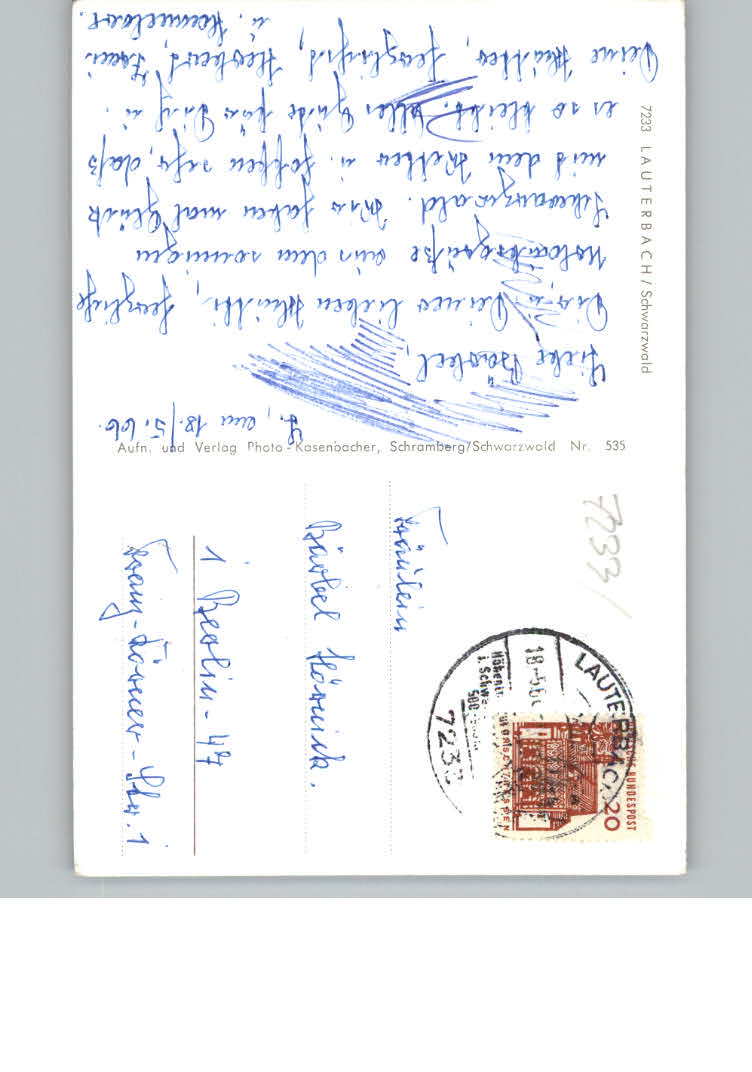 L., den 18./5.66.
Liebe Bärbel,
Dir u. Deiner lieben Mutti, herzliche
Urlaubsgrüße aus dem sonnigen
Schwarzwald. Wir haben mal Glück
mit dem Wetter u. hoffen sehr, daß
es so bleibt. Alles Gute für Dich u.
Deine Mutter, herzlichst, Herbert,
u.
7233 LAUTERBACH / Schwarzwald
Aufn. und Verlag Photo-Kasenbacher, Schramberg/Schwarzwald Nr. 535
7233
LAUTERBACH
18.-5.66
Höhenl
i. Schw
7233
DEUTSCHE BUNDESPOST
20
Fräulein
Bärbel
1 Berlin-47
Franz-Körner-Str. 1